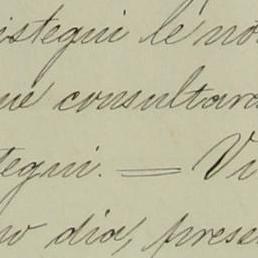 istegui le no
ue consultara
tegui. = Vi
o dia, prese